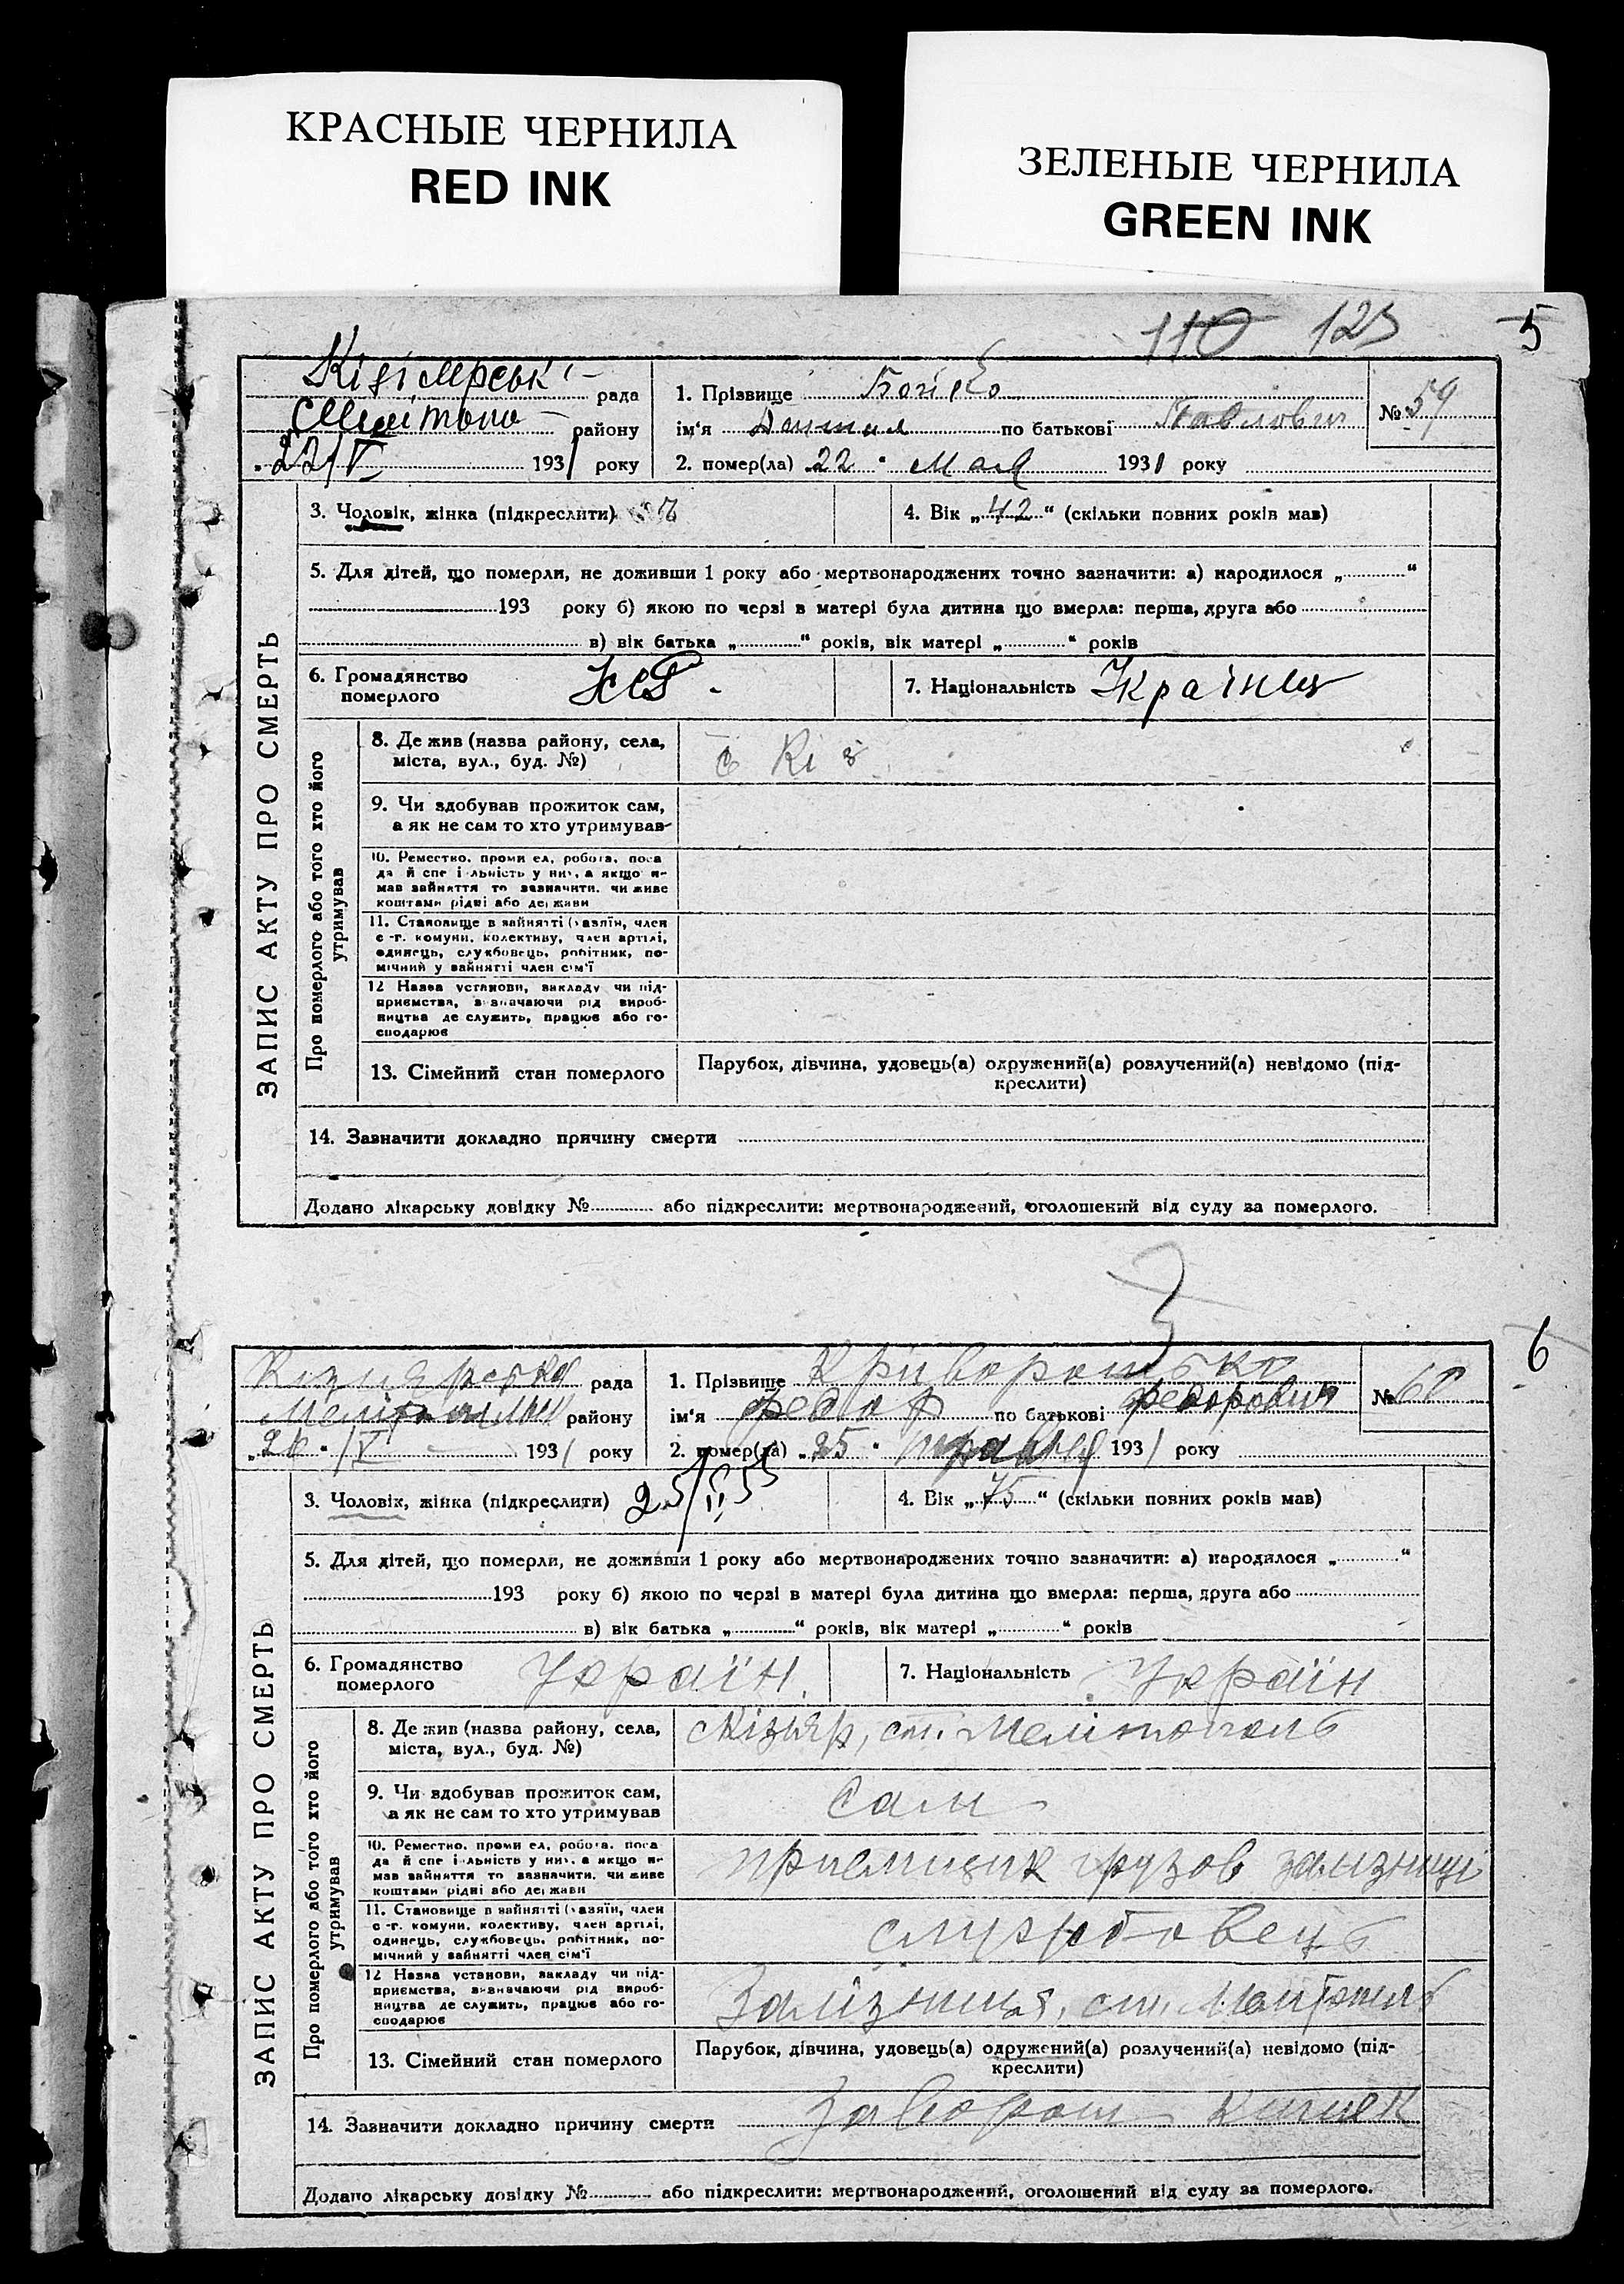 КРАСНЫЕ ЧЕРНИЛА
RED INK
ЗЕЛЕНЫЕ ЧЕРНИЛА
GREEN INK
110 123 5
рада
району
22/V 1931 року
1. Прізвище
ім'я по батькові Павлович
2. помер(ла) 22 " Мая 1931 року
№ 59
ЗАПИС АКТУ ПРО СМЕРТЬ
3. Чоловік, жінка (підкреслити)
4. Вік „42“ (скільки повних років мав)
5. Для дітей, що померли, не доживши 1 року або мертвонароджених точно зазначити: а) народилося „ “
193 року б) якою по черзі в матері була дитина що вмерла: перша, друга або
в) вік батька „ “ років, вік матері „ “ років
6. Громадянство
померлого
7. Національність Українец
Про померлого або того хто його
утримував
8. Де жив (назва району, села,
міста, вул., буд. №)
с Кіз
9. Чи здобував прожиток сам,
а як не сам то хто утримував
10. Ремество, проми ел, робота, поса
да й спе і льність у ни, а якщо н-
мав зайняття то зазначити, чи живе
коштами рідні або держави
11. Становище в зайнятті (хазяїн, член
с-г. комуни, колективу, член артілі,
одинець, службовець, робітник, по-
мічний у зайнятті член сім'ї
12 Назва установи, закладу чи під-
приємства, зазначаючи рід вироб-
ництва де служить, працює або го-
сподарює
13. Сімейний стан померлого
Парубок, дівчина, удовець(а) одружений(а) розлучений(а) невідомо (під-
креслити)
14. Зазначити докладно причину смерти
Додано лікарську довідку № або підкреслити: мертвонароджений, оголошений від суду за померлого.
6
рада
району
26 " /V 1931 року
1. Прізвище Криворотько
ім'я Федор по батькові Федорович
2. помер(ла) „25 " травня 1931 року
№ 60
ЗАПИС АКТУ ПРО СМЕРТЬ
3. Чоловік, жінка (підкреслити)
4. Вік „75“ (скільки повних років мав)
5. Для дітей, що померли, не доживши 1 року або мертвонароджених точно зазначити: а) народилося „ “
193 року б) якою по черзі в матері була дитина що вмерла: перша, друга або
в) вік батька „ “ років, вік матері „ “ років
6. Громадянство
померлого
Україн.
7. Національність Україн
Про померлого або того хто його
утримував
8. Де жив (назва району, села,
міста, вул., буд. №)
Кізіяр, ст. Мелітополь
9. Чи здобував прожиток сам,
а як не сам то хто утримував
Сам
10. Ремество, проми ел, робота, поса
да й спе і льність у ни, а якщо н-
мав зайняття то зазначити, чи живе
коштами рідні або держави
приемщик грузов залізниці
11. Становище в зайнятті (хазяїн, член
с-г. комуни, колективу, член артілі,
одинець, службовець, робітник, по-
мічний у зайнятті член сім'ї
службовець
12 Назва установи, закладу чи під-
приємства, зазначаючи рід вироб-
ництва де служить, працює або го-
сподарює
Залізниця, ст. Мелітополь
13. Сімейний стан померлого
Парубок, дівчина, удовець(а) одружений(а) розлучений(а) невідомо (під-
креслити)
14. Зазначити докладно причину смерти Заворот Кишек
Додано лікарську довідку № або підкреслити: мертвонароджений, оголошений від суду за померлого.